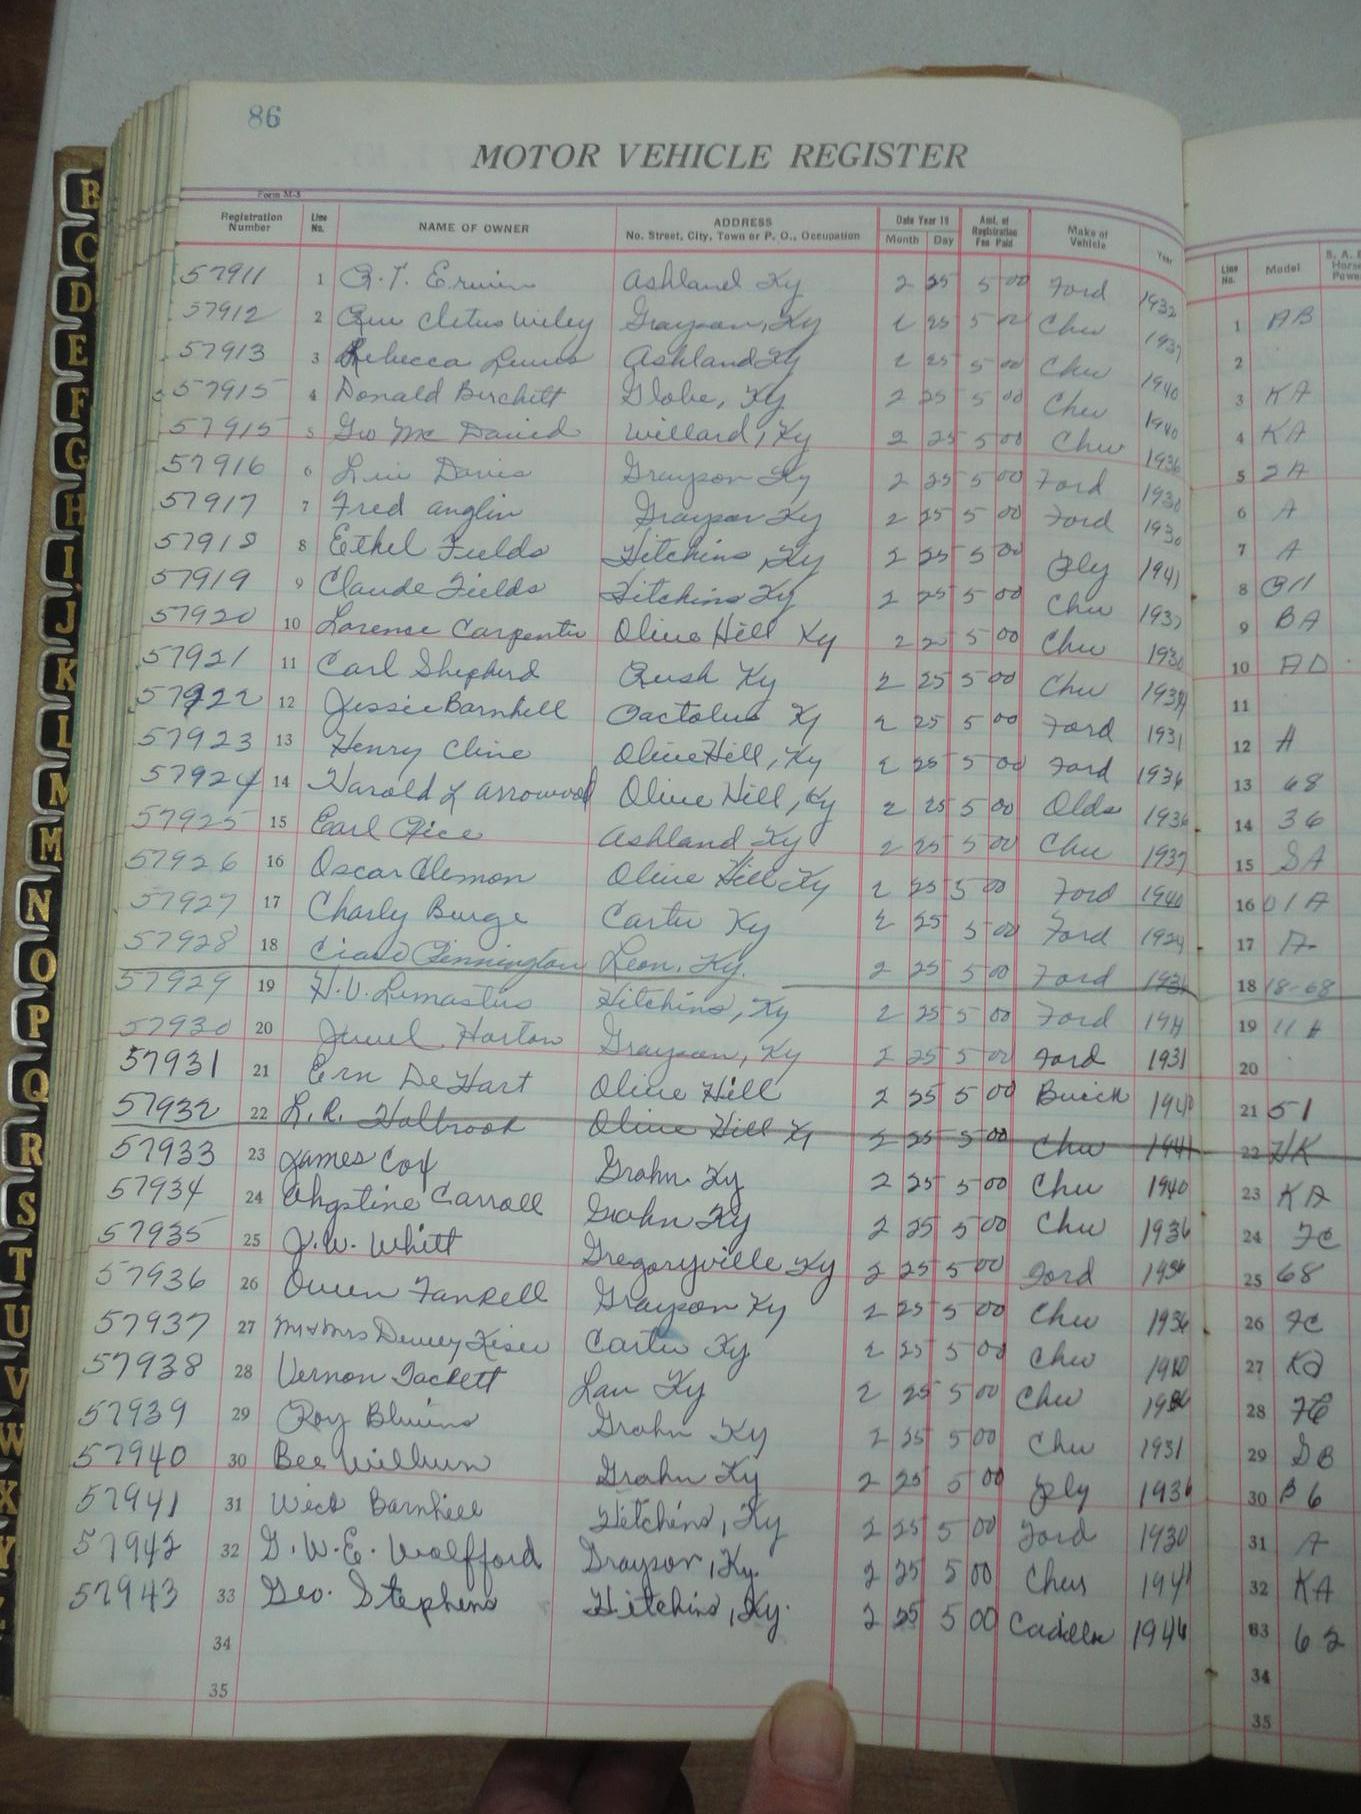 86
MOTOR VEHICLE REGISTER
Form M-5
Registration Number Line No. NAME OF OWNER ADDRESS No. Street, City, Town or P. O., Occupation Date Year 19 Month Day Amt. of Registration Fee Paid Make of Vehicle Year Line No. Model
57911 1 Ashland Ky 2 25 5 00 Ford 1932 1 AB
57912 2 Grayson, Ky 2 25 5 00 Chev 1937 2
57913 3 Rebecca Lewis Ashland Ky 2 25 5 00 Chev 1940 3 KA
57915 4 Donald Burchett Globe, Ky 2 25 5 00 Chev 1940 4 KA
57915 5 Geo Mc David Willard, Ky 2 25 5 00 Chev 1936 5 2A
57916 6 Davis Grayson Ky 2 25 5 00 Ford 1930 6 A
57917 7 Fred Anglin Grayson Ky 2 25 5 00 Ford 1930 7 A
57918 8 Ethel Fields Hitchins Ky 2 25 5 00 Ply 1941 8
57919 9 Claude Fields Hitchins Ky 2 25 5 00 Chev 1937 9 BA
57920 10 Lorence Carpenter Olive Hill Ky 2 25 5 00 Chev 1930 10 AD
57921 11 Carl Shepherd Rush Ky 2 25 5 00 Chev 11
57922 12 Jessie Barnhill Pactolus Ky 2 25 5 00 Ford 1931 12 A
57923 13 Henry Cline Olive Hill, Ky 2 25 5 00 Ford 1936 13 68
57924 14 Harold L Arrowood Olive Hill, Ky 2 25 5 00 Olds 1936 14 36
57925 15 Earl Rice Ashland Ky 2 25 5 00 Chev 1937 15 SA
57926 16 Oscar Clemon Olive Hill Ky 2 25 5 00 Ford 1940 16 01A
57927 17 Charly Burge Carter Ky 2 25 5 00 Ford 1929 17 A
57928 18 Pennington Leon, Ky. 2 25 5 00 Ford 18 18-68
57929 19 H.V. Lemasters Hitchins, Ky 2 25 5 00 Ford 1941 19 11A
57930 20 Jewel Horton Grayson, Ky 2 25 5 00 Ford 1931 20
57931 21 Ern DeHart Olive Hill 2 25 5 00 Buick 1940 21 51
57932 22 L.R. Holbrook Olive Hill Ky 2 25 5 00 Chev 1941 22
57933 23 James Cox Grahn Ky 2 25 5 00 Chev 1940 23 KA
57934 24 Carroll Grahn Ky 2 25 5 00 Chev 1936 24 FC
57935 25 J.W. Whitt Gregoryville Ky 2 25 5 00 Ford 1936 25 68
57936 26 Owen Grayson Ky 2 25 5 00 Chev 1936 26 FC
57937 27 Mr & Mrs Dewey Kiser Carter Ky 2 25 5 00 Chev 1940 27 KA
57938 28 Vernon Tackett Ky 2 25 5 00 Chev 28
57939 29 Roy Blevins Grahn Ky 2 25 5 00 Chev 1931 29
57940 30 Bee Wilburn Grahn Ky 2 25 5 00 Ply 1936 30
57941 31 Barnhill Hitchins, Ky 2 25 5 00 Ford 1930 31 A
57942 32 G.W.E. Wolfford Grayson, Ky. 2 25 5 00 Chev 1941 32 KA
57943 33 Geo. Stephens Hitchins, Ky. 2 25 5 00 33 62
34 34
35 35
B
C
D
E
F
G
H
I
J
K
L
M
M
N
O
P
Q
R
S
T
U
V
W
X
Y